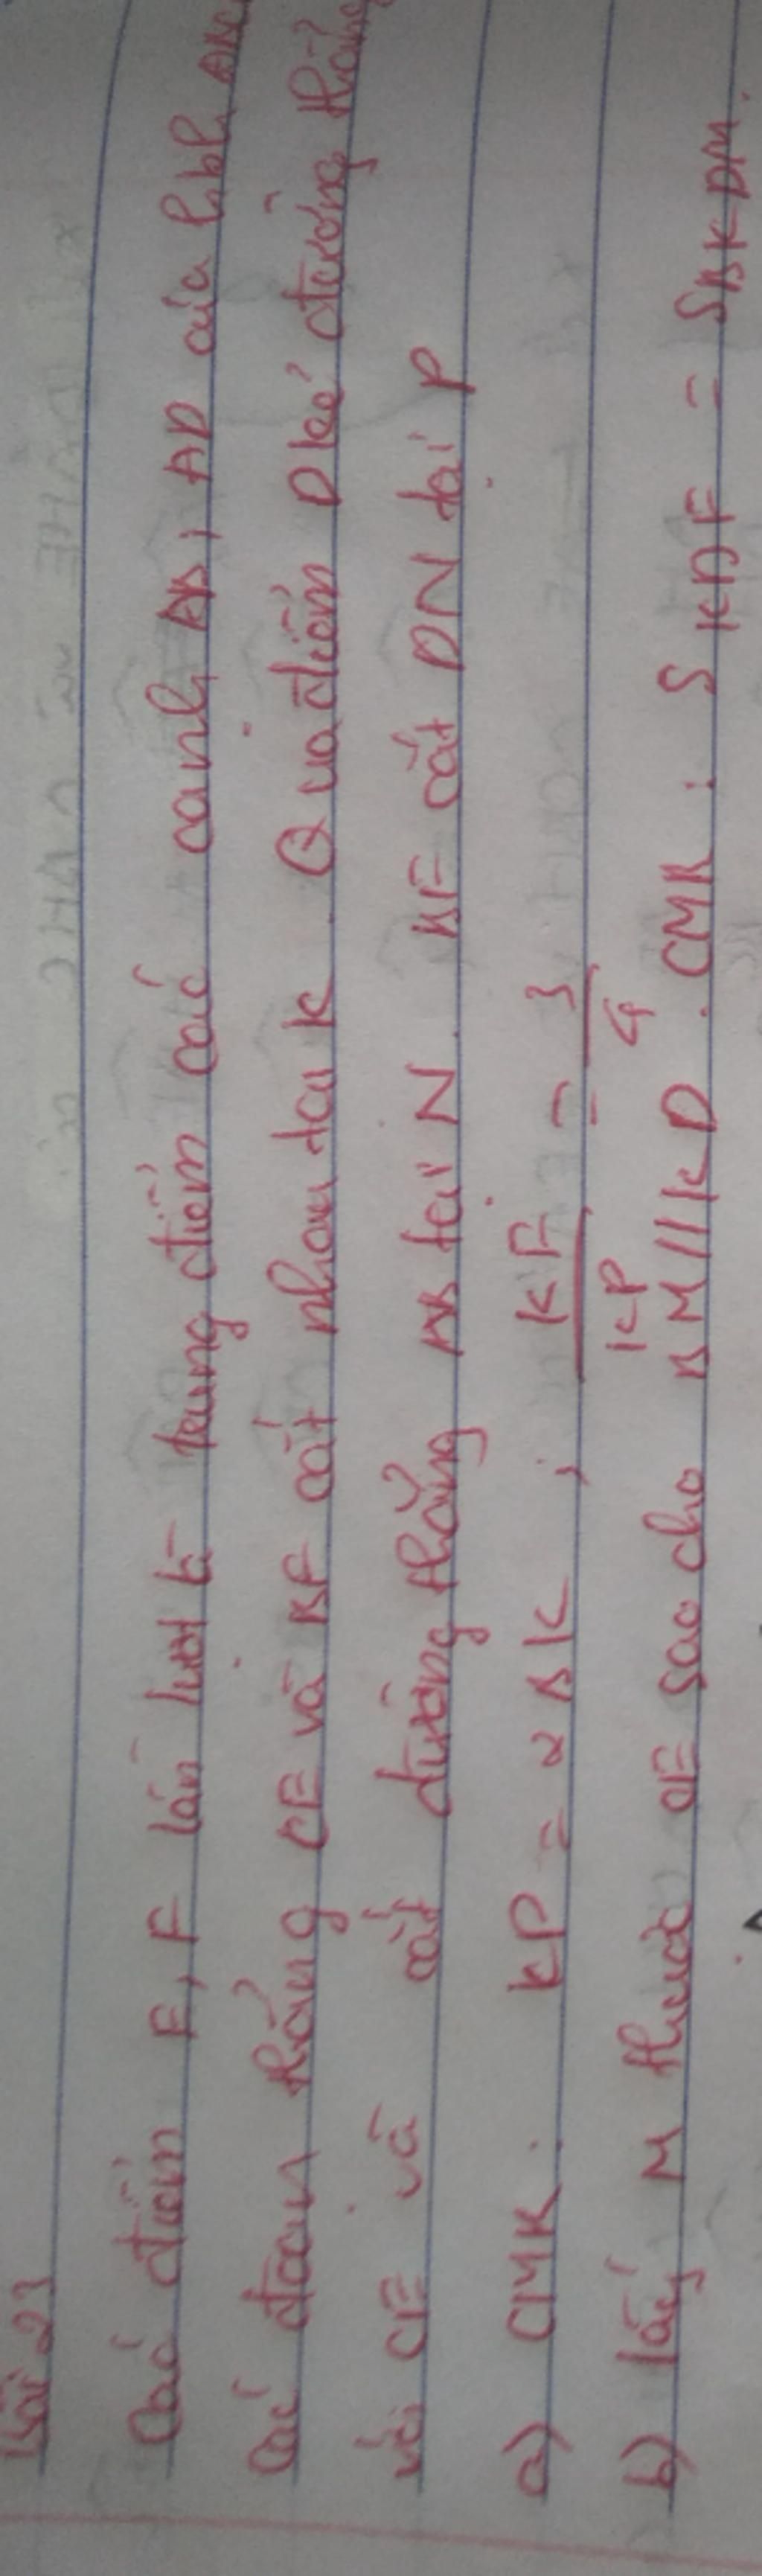 Bài 23
Các điểm E, F lần lượt là trung điểm các cạnh AB, AD của hbh
Các đoạn thẳng CE và BF cắt nhau tại K. Qua điểm D kẻ đường thẳng
với CE và cắt đường thẳng AB tại N. BF cắt DN tại P
a) CMR: KP = 2BK, KF/KP = 3/4
b) lấy M thuộc CE sao cho BM//KD. CMR: S KDF = SBKDM.